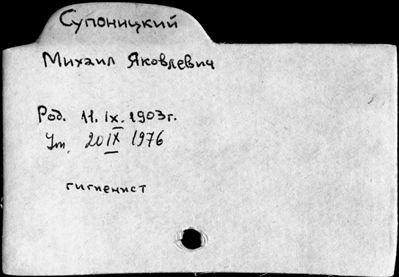 Супоницкий
Михаил Яковлевич
Род. 11.IX.1903г.
Ум. 20 IX 1976
гигиенист